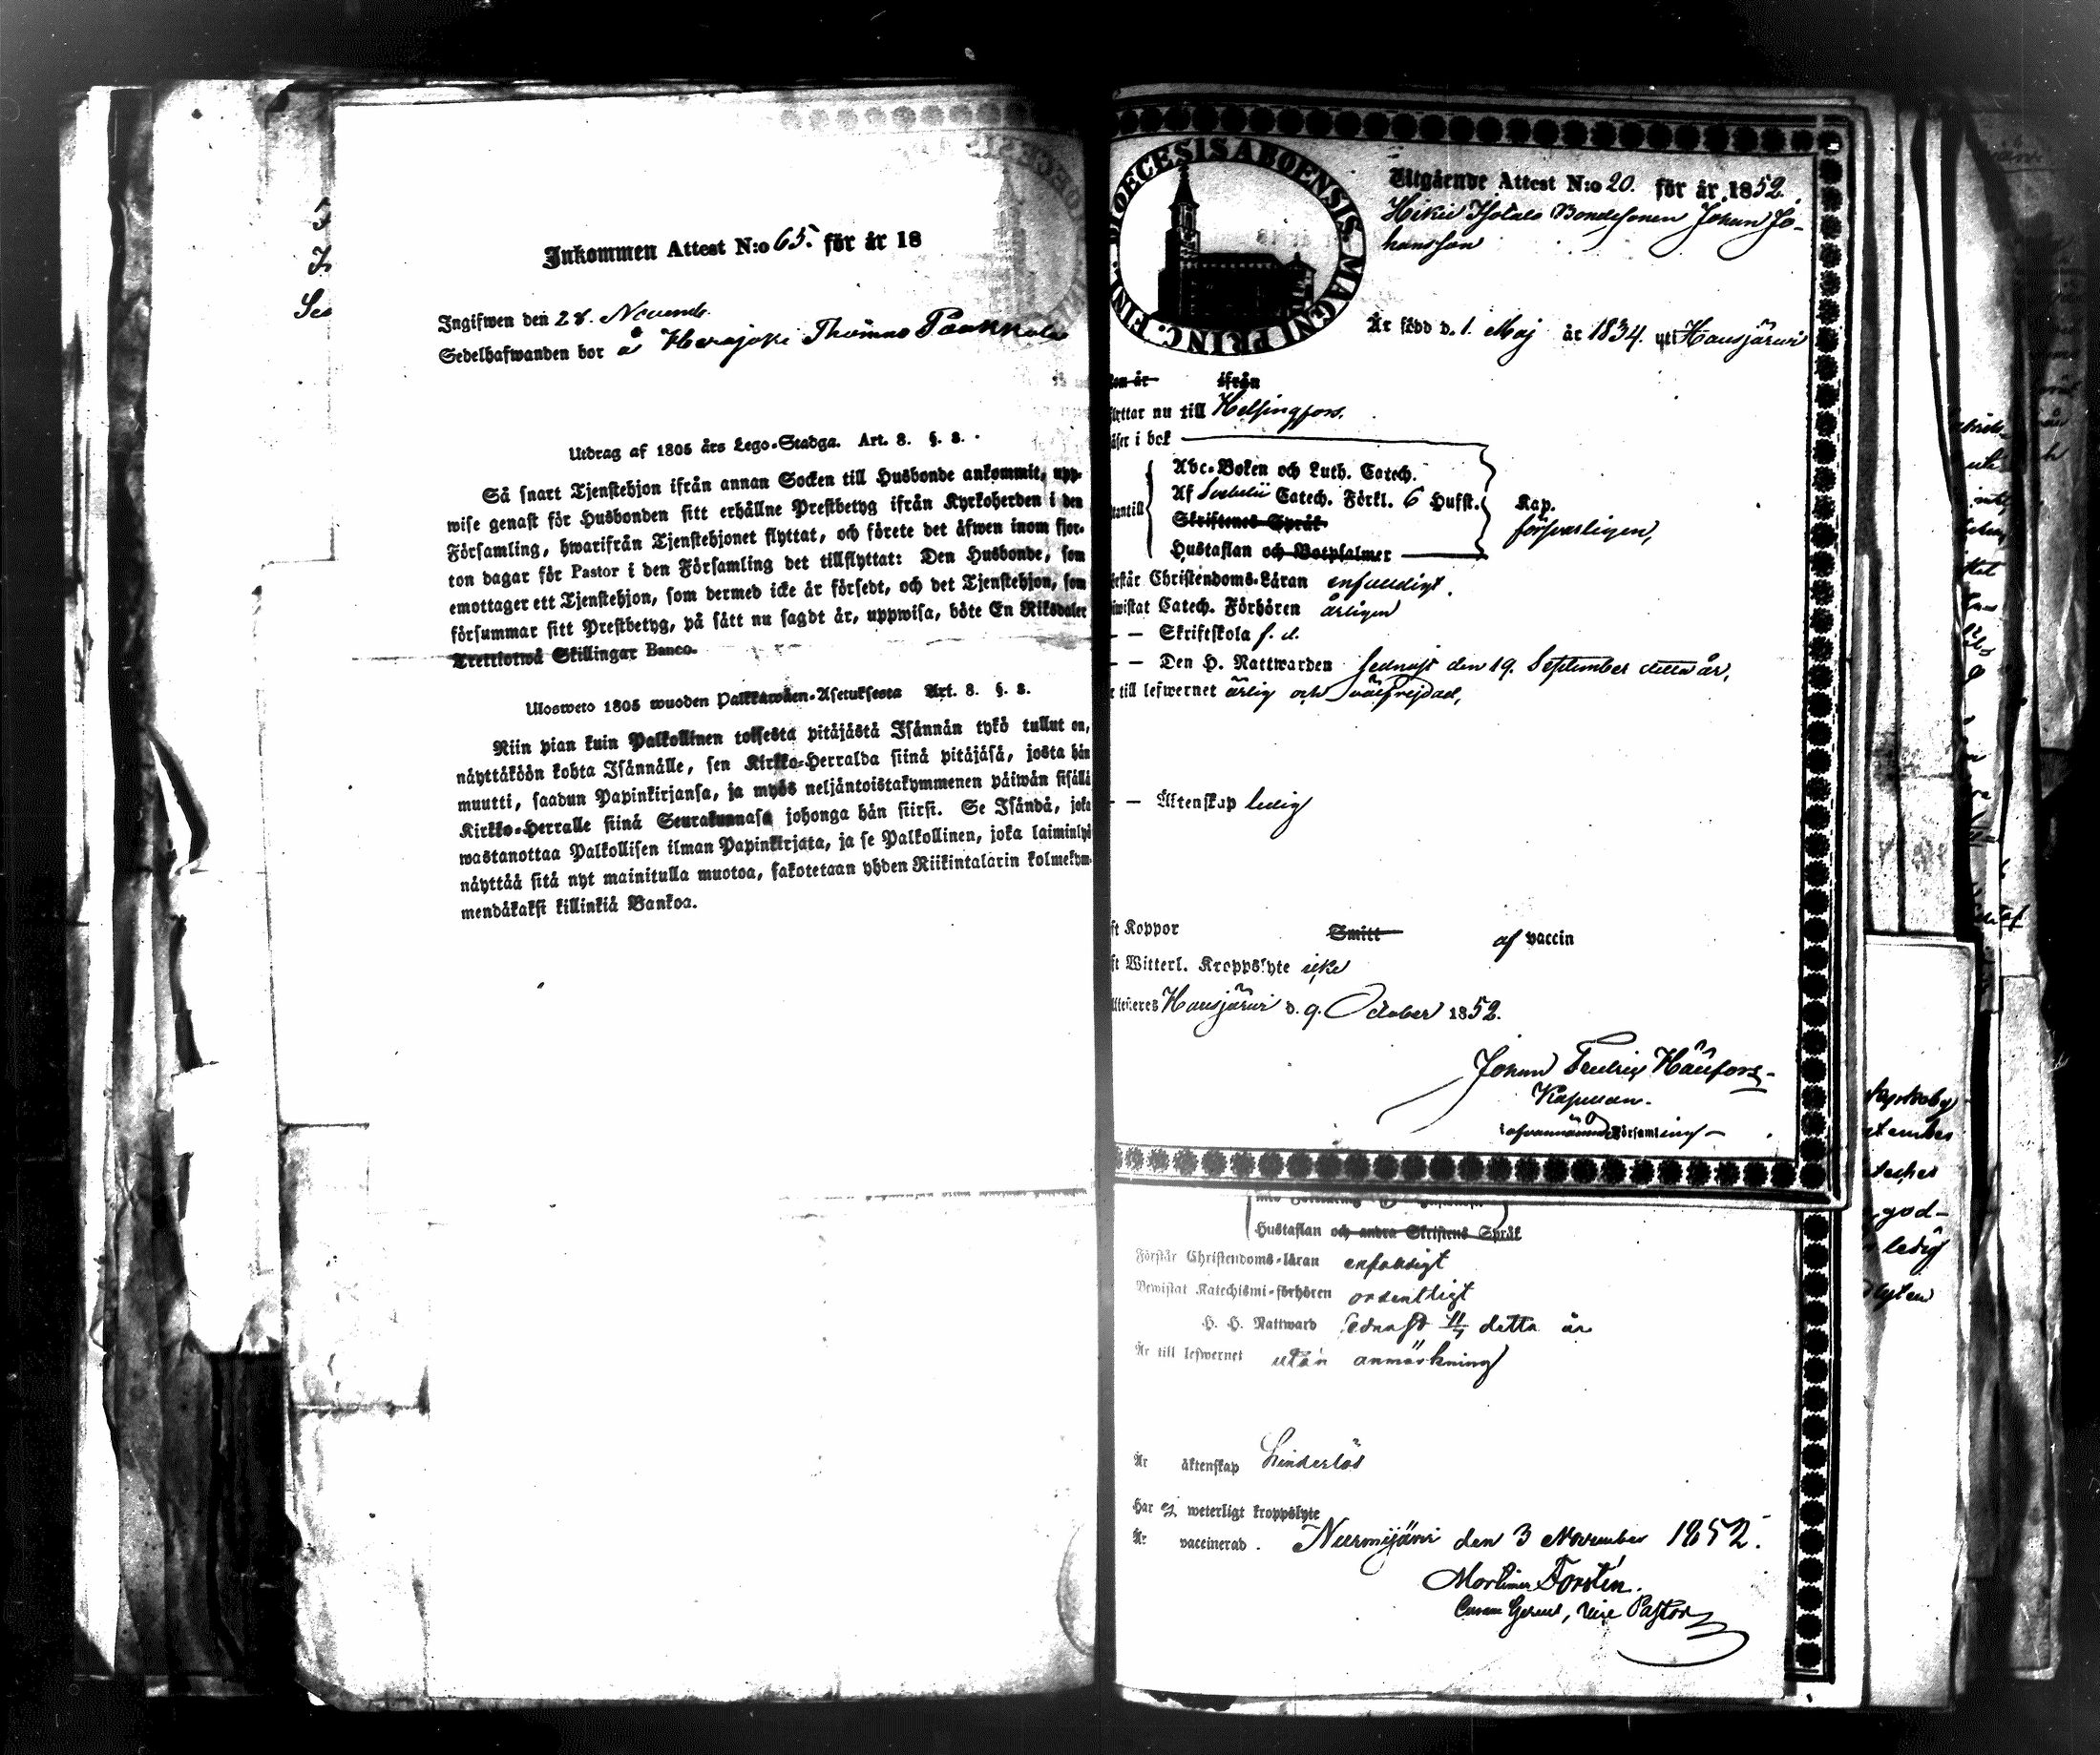 Inkommen Attest N:o 65. för år 18
Ingifwen den 28. Novemb.
Sedelhafwanden bor å Herajoki Thomas Paakkala
Utdrag af 1805 års Lego-Stadga. Art. 8. §. 8.
Så snart Tjenstehjon ifrån annan Socken till Husbonde ankommit, upp-
wise genast för Husbonden sitt erhållne Prestbetyg ifrån Kyrkoherden i den
Församling, hwarifrån Tjenstehjonet flyttat, och förete det äfwen inom fjor-
ton dagar för Pastor i den Församling det tillflyttat: Den Husbonde, som
emottager ett Tjenstehjon, som dermed icke är försedt, och det Tjenstehjon, som
försummar sitt Prestbetyg, på sätt nu sagdt är, uppwisa, böte En Riksdaler
Trettiotwå Skillingar Banco.
Ulosweto 1805 wuoden Palkkawäen-Asetuksesta Art. 8. §. 8.
Niin pian kuin Palkollinen toisesta pitäjästä Isännän tykö tullut on,
näyttäköön kohta Isännälle, sen Kirkko-Herralda siinä pitäjäsä, josta hän
muutti, saadun Papinkirjansa, ja myös neljäntoistakymmenen päiwän sisällä
Kirkko-Herralle siinä Seurakunnasa johonga hän siirsi. Se Isändä, joka
wastanottaa Palkollisen ilman Papinkirjata, ja se Palkollinen, joka laiminlyö
näyttää sitä nyt mainitulla muotoa, sakotetaan yhden Riikintalarin kolmekym-
mendäkaksi killinkiä Bankoa.
DIOECESIS ABOENSIS. MAGNI PRINC. FINL.
Utgående Attest N:o 20. för år 1852.
Hikiä Isotalo Bondesonen Johan Jo-
hansson
Är född d. 1. Maj år 1834. uti Hausjärwi
kom år ifrån
flyttar nu till Helsingfors.
läser i bok
Abc-Boken och Luth. Catech.
Af Catech. Förkl. 6 Hufst. Kap.
utantill Skriftenes Språk försvarligen,
Hustaflan och Botpsalmer
förstår Christendoms-Läran enfaldigt.
bewistat Catech. Förhören årligen
— — Skriftskola f. d.
— — Den H. Nattwarden sednast den 19. September detta år,
r till lefwernet ärlig och välfrejdad,
— — Äktenskap ledig
ft Koppor Smitt af vaccin
ft Witterl. Kroppslyte icke
Hausjärwi d. 9. October 1852.
Johan Fredric
Kapellan.
i ofvannämnde Församling
Hustaflan och andra Skriftens Språk
Förstår Christendoms-läran enfaldigt
Bewistat Katechismi-förhören ordentligt
H. H. Nattward sednast 11/7 detta år
Är till lefwernet utan anmärkning
Är äktenskap hinderlös
Har ej weterligt kroppslyte
Är vaccinerad. Nurmijärvi den 3 November 1852.
Mortimer Forstén.
Vice Pastor